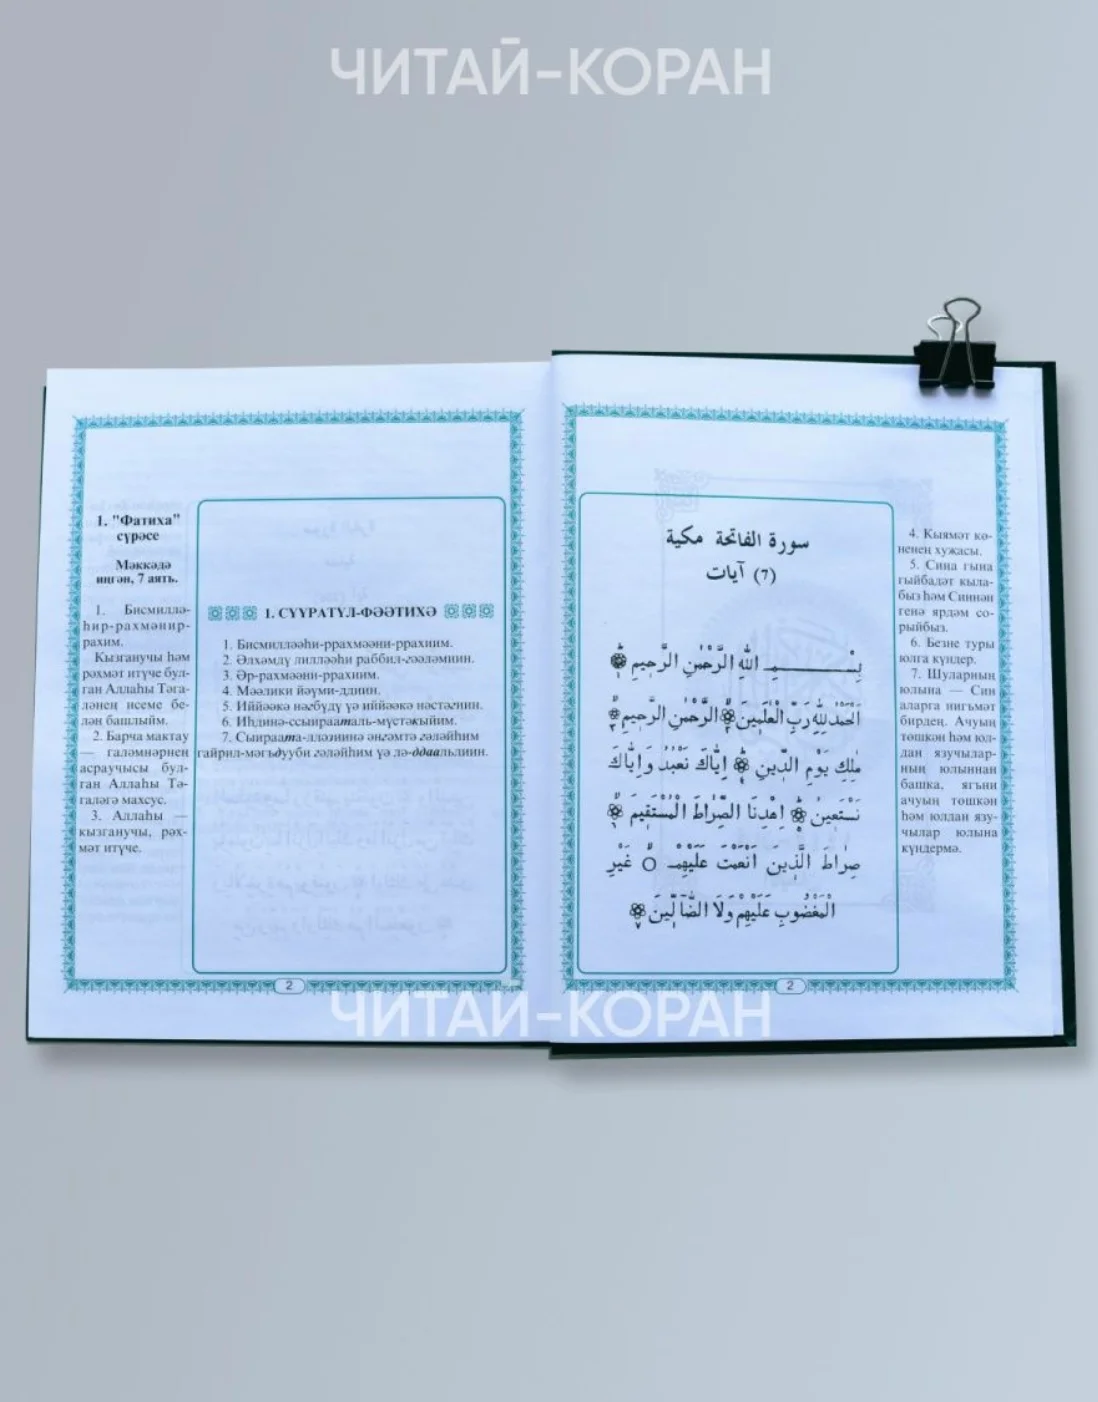 ЧИТАЙ-КОРАН
1. "Фатиха"
сүрәсе
Мәккәдә
иңгән, 7 аять.
1. Бисмиллә-
һир-рахмәнир-
рахим.
Кызганучы һәм
рәхмәт итүче бул-
ган Аллаһы Тәга-
ләнең исеме бе-
лән башлыйм.
2. Барча мактау
— галәмнәрнең
асраучысы бул-
ган Аллаһы Тә-
галәгә махсус.
3. Аллаһы —
кызганучы, рәх-
мәт итүче.
1. СҮҮРАТҮЛ-ФӘӘТИХӘ
1. Бисмилләәһи-ррахмәәни-ррахиим.
2. Әлхәмдү лилләәһи раббил-гәәләмиин.
3. Әр-рахмәәни-ррахиим.
4. Мәәлики йәүми-ддиин.
5. Иййәәкә нәгбүдү үә иййәәкә нәстәгиин.
6. Иһдинә-ссыирааталь-мүстәкыйим.
7. Сыираата-лләзиинә әнгәмтә гәләйһим
гайрил-мәгъдууби гәләйһим үә лә-ддаальлиин.
2
سورة الفاتحة مكية
(7) آيات
بِسْمِ اللهِ الرَّحْمٰنِ الرَّحِيمِ ۝١
اَلْحَمْدُ لِلّٰهِ رَبِّ الْعٰلَمِينَ ۝٢ اَلرَّحْمٰنِ الرَّحِيمِ ۝٣
مٰلِكِ يَوْمِ الدِّينِ ۝٤ اِيَّاكَ نَعْبُدُ وَاِيَّاكَ
نَسْتَعِينُ ۝٥ اِهْدِنَا الصِّرَاطَ الْمُسْتَقِيمَ ۝٦
صِرَاطَ الَّذِينَ اَنْعَمْتَ عَلَيْهِمْ ۝ غَيْرِ
الْمَغْضُوبِ عَلَيْهِمْ وَلَا الضَّآلِّينَ ۝٧
4. Кыямәт кө-
ненең хужасы.
5. Сиңа гына
гыйбадәт кыла-
быз һәм Синнән
генә ярдәм со-
рыйбыз.
6. Безне туры
юлга күндер.
7. Шуларның
юлына — Син
аларга нигъмәт
бирдең. Ачуың
төшкән һәм юл-
дан язучылар-
ның юлыннан
башка, ягъни
ачуың төшкән
һәм юлдан язу-
чылар юлына
күндермә.
2
ЧИТАЙ-КОРАН